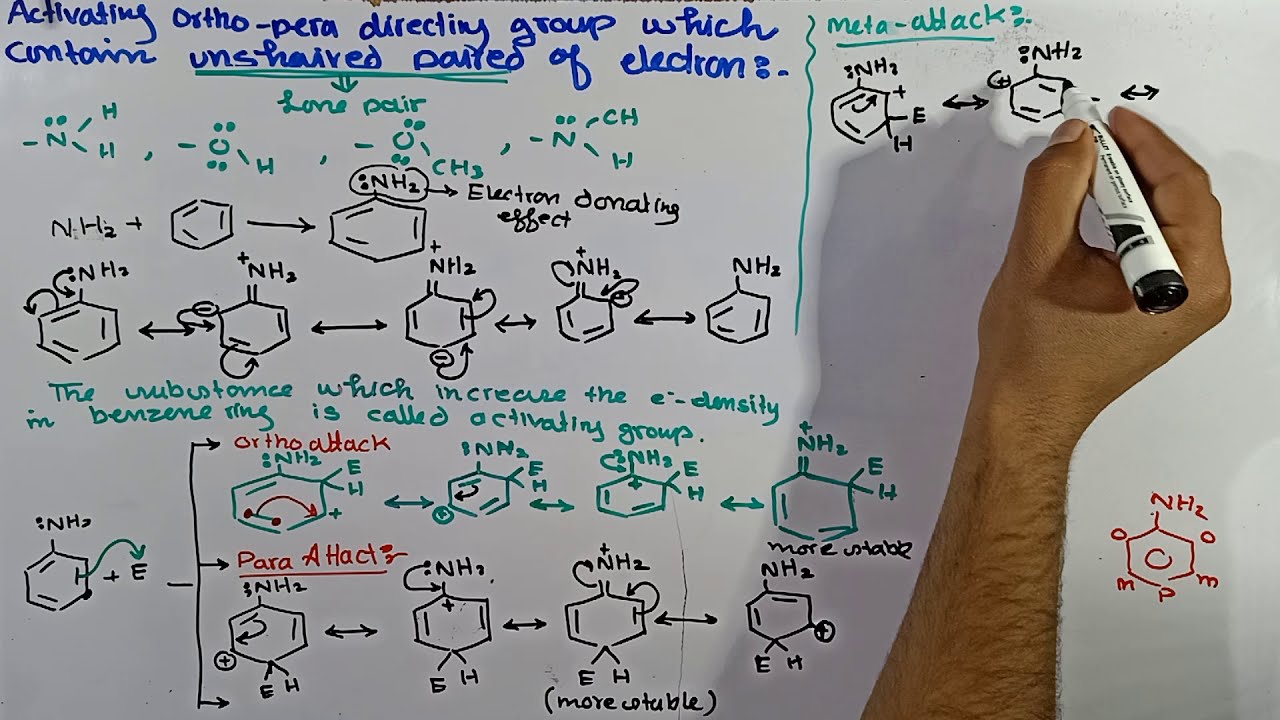 Activating Ortho-pera directing group which
contain unshaired paired of electron:-
Lone pair
-N H H , -O H , -O CH3 , -N CH H
NH2 + :NH2 Electron donating
effect
:NH2 +NH2 +NH2 +NH2 NH2
The substance which increase the e⁻-density
in benzene ring is called activating group.
Ortho attack
:NH2 E H + :NH2 E H + :NH2 E H + +NH2 E H
more stable
:NH2 H + E
Para Attact:-
:NH2 + E H :NH2 + E H +NH2 E H NH2 + E H
(more stable)
meta-attack:-
:NH2 + E H :NH2 +
NH2
O O
m m
P